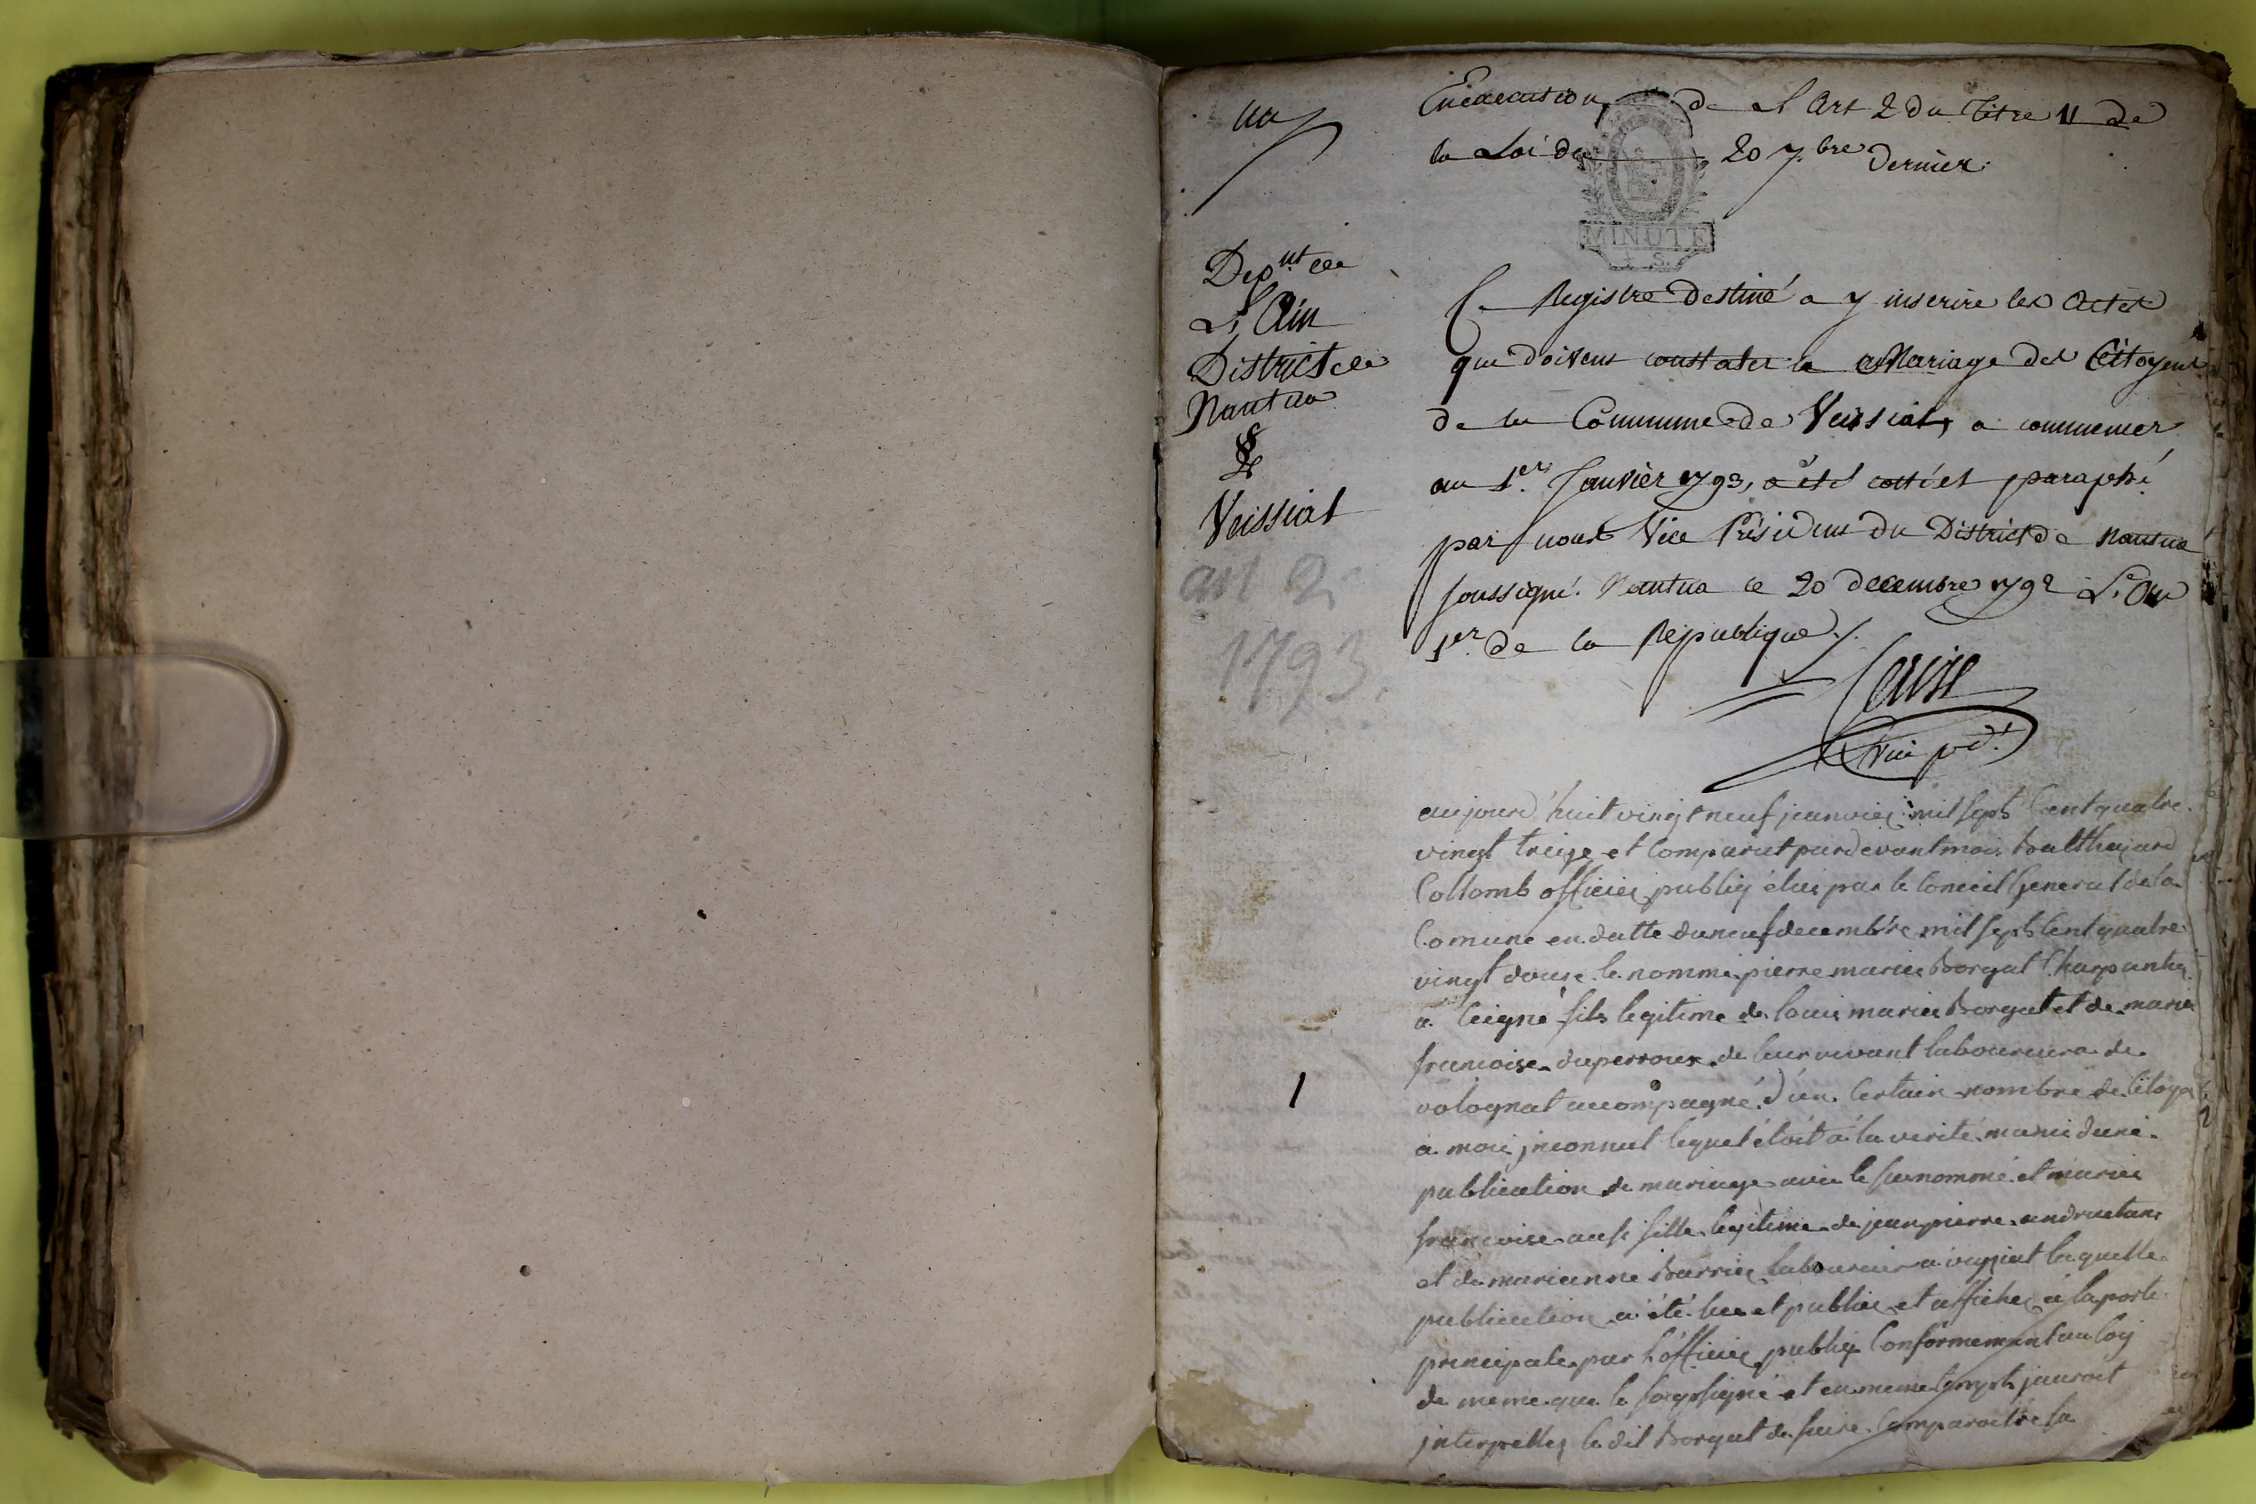 una
En execution de L'Art 2 du Titre 11 de
la Loi du 20 7.bre dernier.
MINUTE
Dep.nt de
L'Ain
District de
Nantua
§
Veissiat
an 2
1793.
Ce Registre destiné a y inscrire les Actes
que doivent constater le Mariage des Citoyens
de la Commune de Veissiat, a commencer
au 1.er Janvier 1793, a été cotté et paraphé
par nous Vice Président du District de Nantua
soussigné. Nantua ce 20 decembre 1792 L'An
1.er de la République ./.
vice pdt
aujourd'huit vingt neuf janvier mil sept Cent quatre
vingt treize et Comparut pardevant moi Balthazard
Collomb officier publiq élus par le Conceil General de la
Comune en datte du neuf decembre mil sept Cent quatre
vingt douze le nommé pierre marie Borgat Charpantier
a Ceigne fils legitime de louis marie Borgat et de marie
francoise duperroux de leur vivant laboureurs de
volognat accompagné d'un Certain nombre de Citoyen
a moi jnconnut lequel étoit a la verité muni dune
publication de mariage avec le surnommé et marie
francoise aussi fille legitime de jean pierre andruetans
et de marianne Barrier laboureur a veissiat laquelle
publication a été lue et publiée et affichée a la porte
principale par l'officier publiq Conformement au loy
de meme que le soussigné et en meme temps jaurois
jnterpellez le dit Borgat de faire Comparoitre sa
1